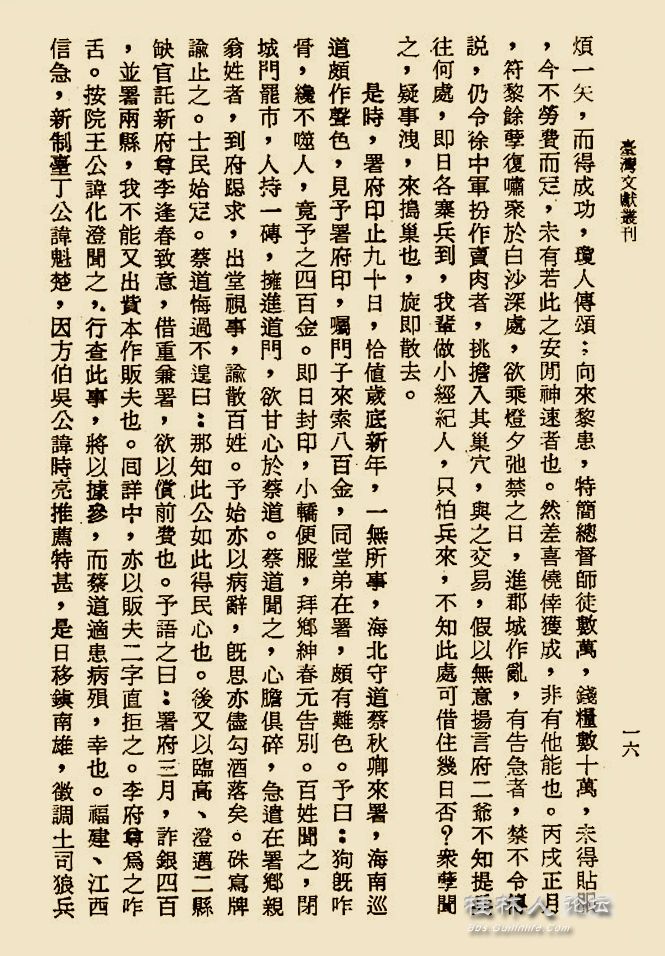 臺灣文獻叢刊
一六
煩一矢,而得成功,瓊人傳頌:向來黎患,特簡總督師徒數萬,錢糧數十萬,未得貼服
,今不勞費而定,未有若此之安閒神速者也。然差喜僥倖獲成,非有他能也。丙戌正月
,符黎餘孽復嘯聚於白沙深處,欲乘燈夕弛禁之日,進郡城作亂,有告急者,禁不令傳
説,仍令徐中軍扮作賣肉者,挑擔入其巢穴,與之交易,假以無意揚言府二爺不知提兵
往何處,即日各寨兵到,我輩做小經紀人,只怕兵來,不知此處可借住幾日否?衆孽聞
之,疑事洩,來搗巢也,旋即散去。
是時,署府印止九十日,恰值歲底新年,一無所事,海北守道蔡秋卿來署,海南巡
道頗作聲色,見予署府印,囑門子來索八百金,同堂弟在署,頗有難色。予曰:狗既咋
骨,纔不噬人,竟予之四百金。即日封印,小轎便服,拜鄉紳春元告別。百姓聞之,閉
城門罷市,人持一磚,擁進道門,欲甘心於蔡道。蔡道聞之,心膽俱碎,急遣在署鄉親
翁姓者,到府跽求,出堂視事,諭散百姓。予始亦以病辭,既思亦儘勾酒落矣。硃寫牌
諭止之。士民始定。蔡道悔過不遑曰:那知此公如此得民心也。後又以臨高、澄邁二縣
缺官託新府尊李逢春致意,借重兼署,欲以償前費也。予語之曰:署府三月,詐銀四百
,並署兩縣,我不能又出貲本作販夫也。囘詳中,亦以販夫二字直拒之。李府尊爲之咋
舌。按院王公諱化澄聞之,行查此事,將以據參,而蔡道適患病殞,幸也。福建、江西
信急,新制臺丁公諱魁楚,因方伯吳公諱時亮推薦特甚,是日移鎮南雄,徵調土司狼兵
桂林人 论坛
Bbs.Guilinlife.Com